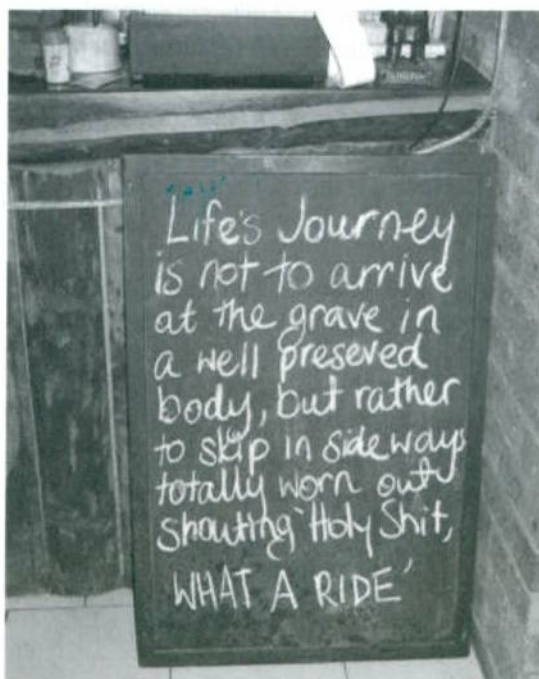 Life's Journey
is not to arrive
at the grave in
a well preseved
body, but rather
to skip in sideways
totally worn out
shouting 'Holy Shit,
WHAT A RIDE'